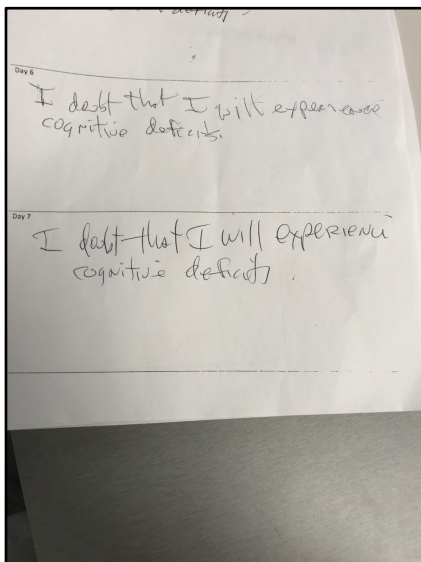 deficits.
Day 6
I doubt that I will experience
cognitive deficits.
Day 7
I doubt that I will experienc
cognitive deficits.